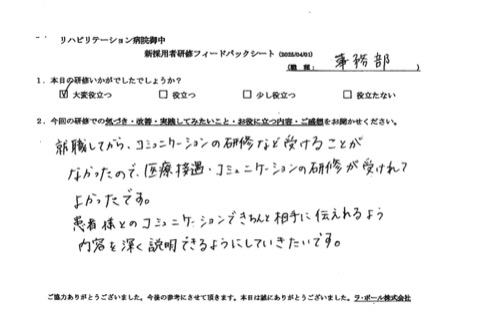 リハビリテーション病院御中
新採用者研修フィードバックシート (2025/04/01)
（職種： 事務部 ）
１．本日の研修いかがでしたでしょうか？
☑ 大変役立つ □ 役立つ □ 少し役立つ □ 役立たない
２．今回の研修での気づき・改善・実践してみたいこと・お役に立つ内容・ご感想をお聞かせください。
就職してから、コミュニケーションの研修など受けることが
なかったので、医療接遇・コミュニケーションの研修が受けれて
よかったです。
患者様とのコミュニケーションできちんと相手に伝えれるよう
内容を深く説明できるようにしていきたいです。
ご協力ありがとうございました。今後の参考にさせて頂きます。本日は誠にありがとうございました。ラ・ポール株式会社